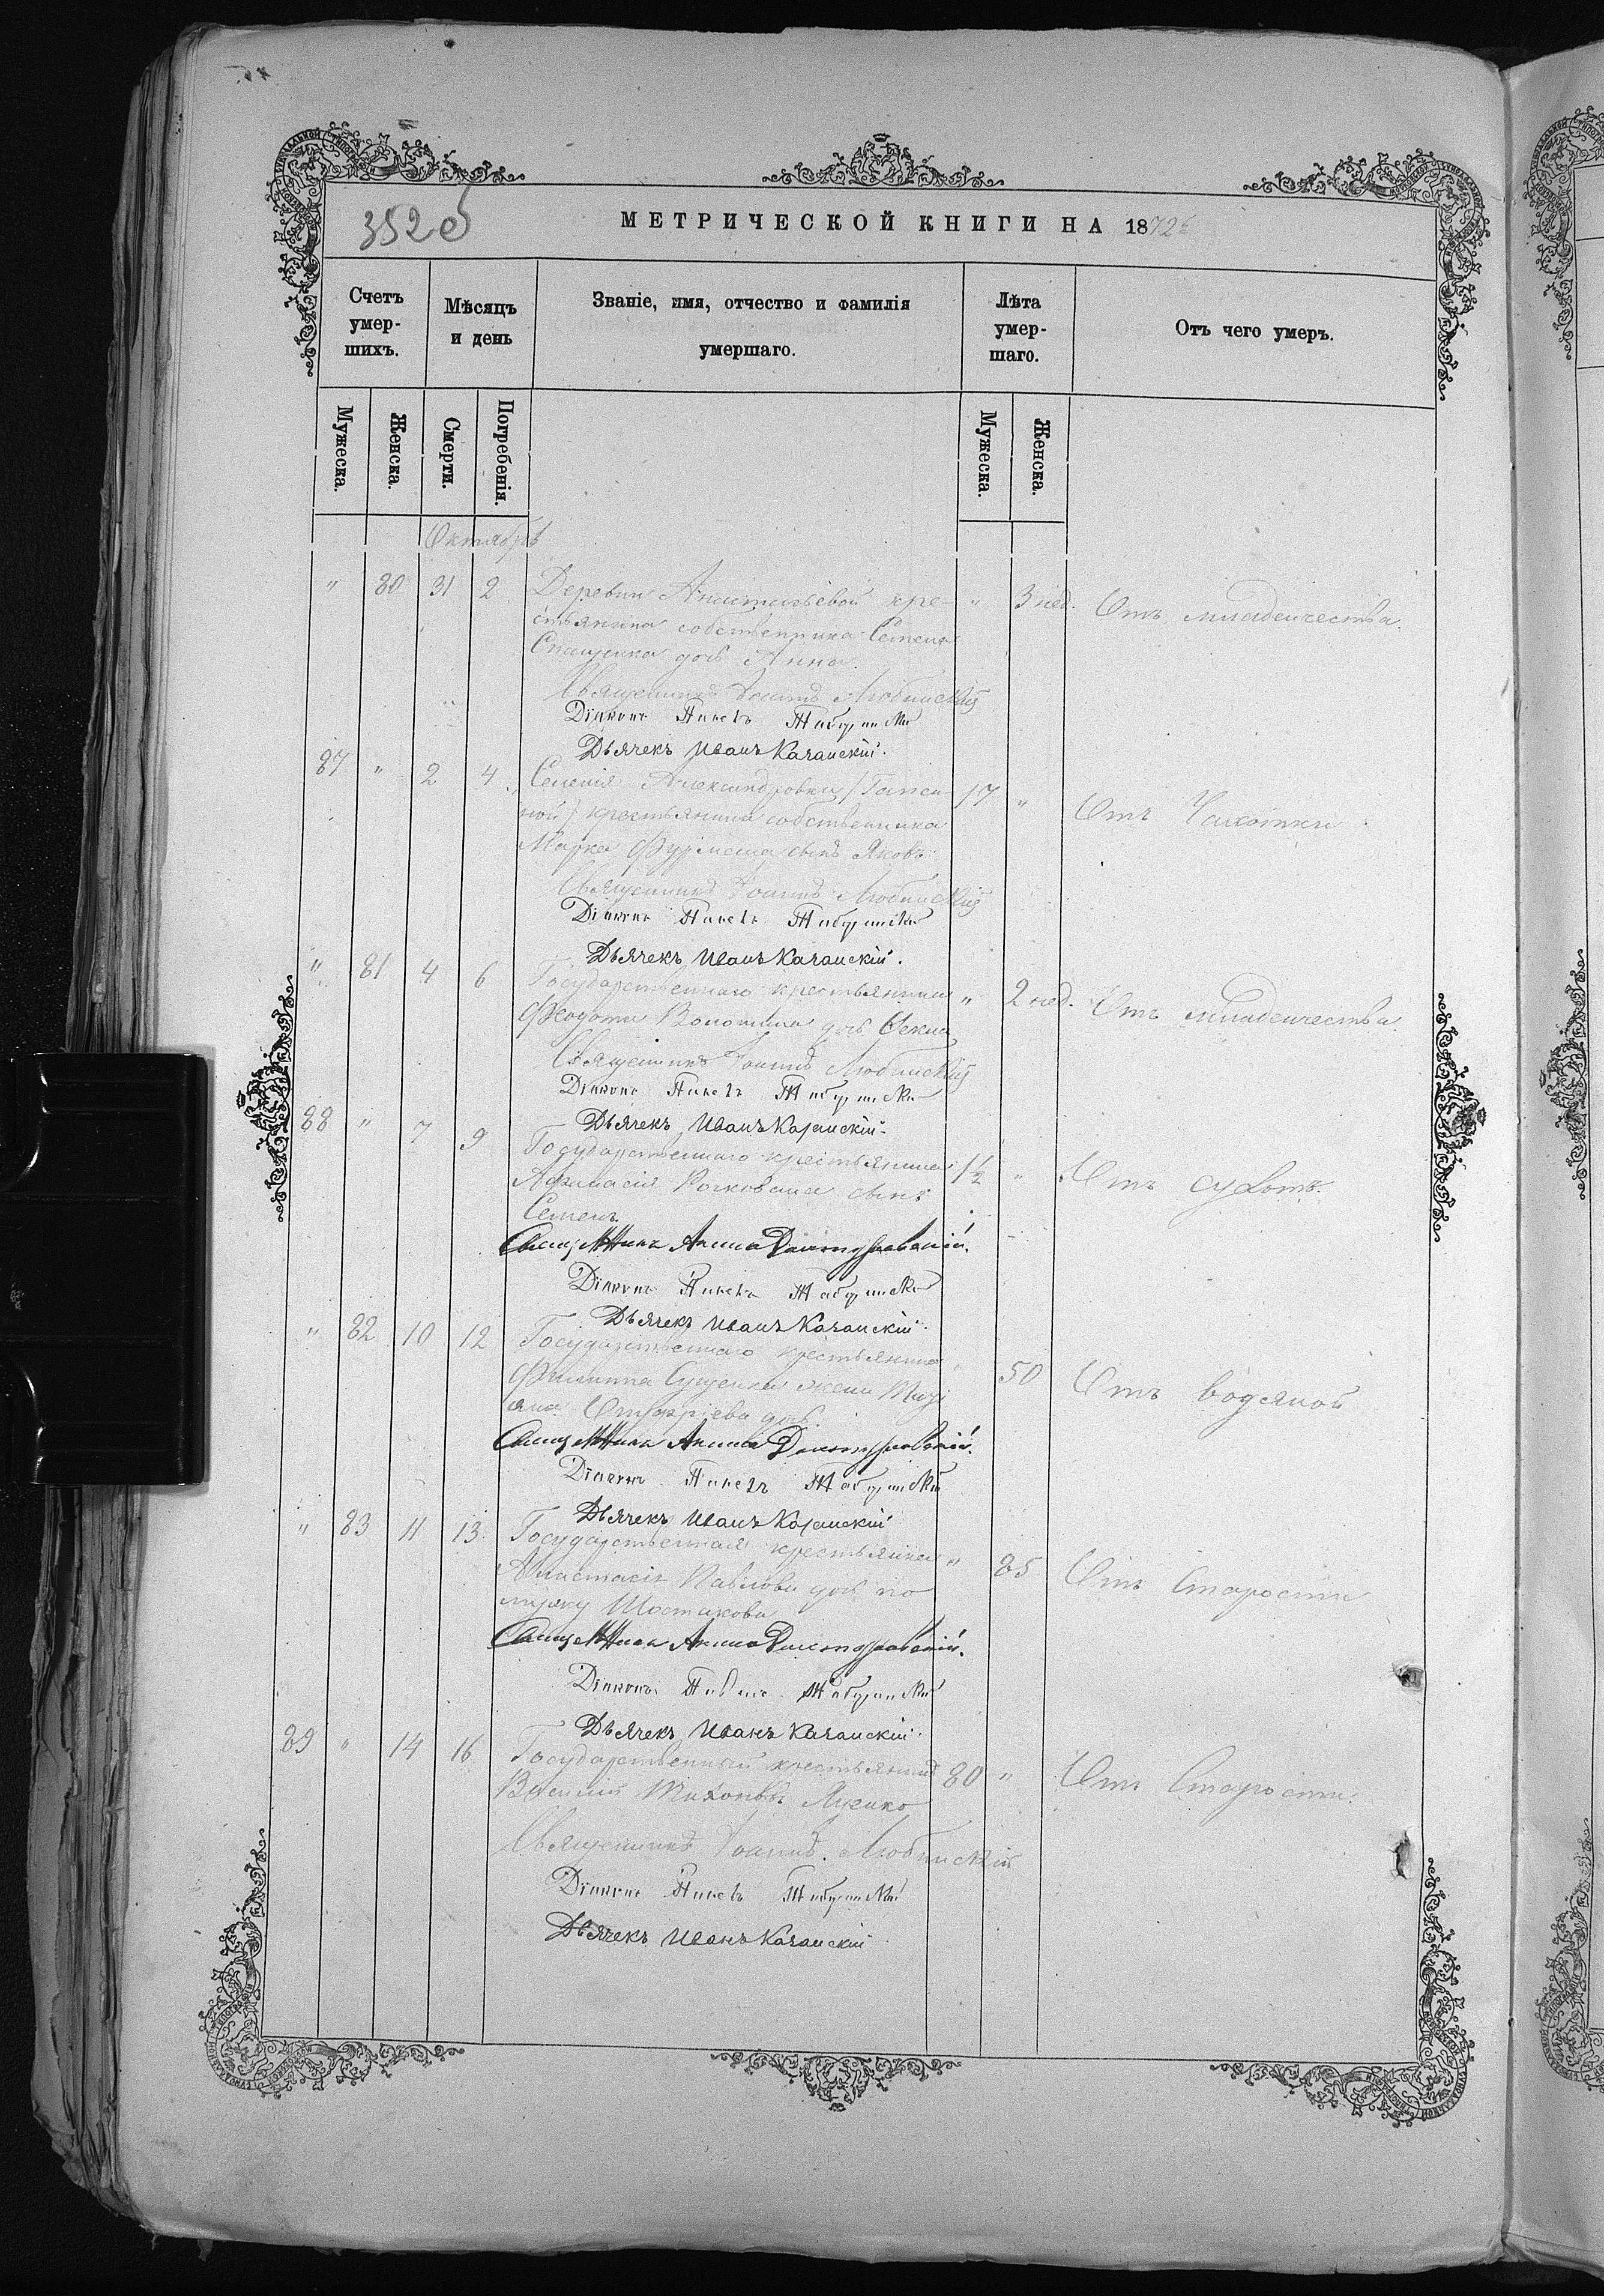 352 об
МЕТРИЧЕСКОЙ КНИГИ НА 1872
Счетъ умер- шихъ.
Мѣсяцъ и день
Званіе, имя, отчество и фамилія умершаго.
Лѣта умер- шаго.
Отъ чего умеръ.
Мужеска. Женска. Смерти. Погребенія. Мужеска. Женска.
Октябрь
" 80 31 2 Деревни Анастасьевой кре- " 3 нед. Отъ младенчества.
стьянина собственника Семена
Спащенка дочь Анна.
Священникъ Іоаннъ Любинскій
Діаконъ Павелъ
Дьячекъ Иванъ Качанскій.
87 " 2 4 Селенія Александровки 17 " Отъ Чахотки
крестьянина собственника
Марка сынъ Яковъ
Священникъ Іоаннъ Любинскій
Діаконъ Павелъ
Дьячекъ Иванъ Качанскій.
" 81 4 6 Государственнаго крестьянина " 2 нед. Отъ младенчества.
Феодота дочь
Священникъ Іоаннъ Любинскій
Діаконъ Павелъ
Дьячекъ Иванъ Качанскій
88 " 7 9 Государственнаго крестьянина 1½ " Отъ сухотъ.
Афанасія сынъ
Семенъ
Діаконъ Павелъ
Дьячекъ Иванъ Качанскій
" 82 10 12 Государственнаго крестьянина " 50 Отъ водяной
Филиппа Сущенка жена
дочь.
Діаконъ Павелъ
Дьячекъ Иванъ Качанскій
" 83 11 13 Государственная крестьянка " 85 Отъ Старости
Анастасія Павлова дочь по
мужу Шостакова
Діаконъ Павелъ
Дьячекъ Иванъ Качанскій
89 " 14 16 Государственный крестьянинъ 80 " Отъ Старости.
Василій Тихоновъ Яценко
Священникъ Іоаннъ Любинскій
Діаконъ Павелъ
Дьячекъ Иванъ Качанскій